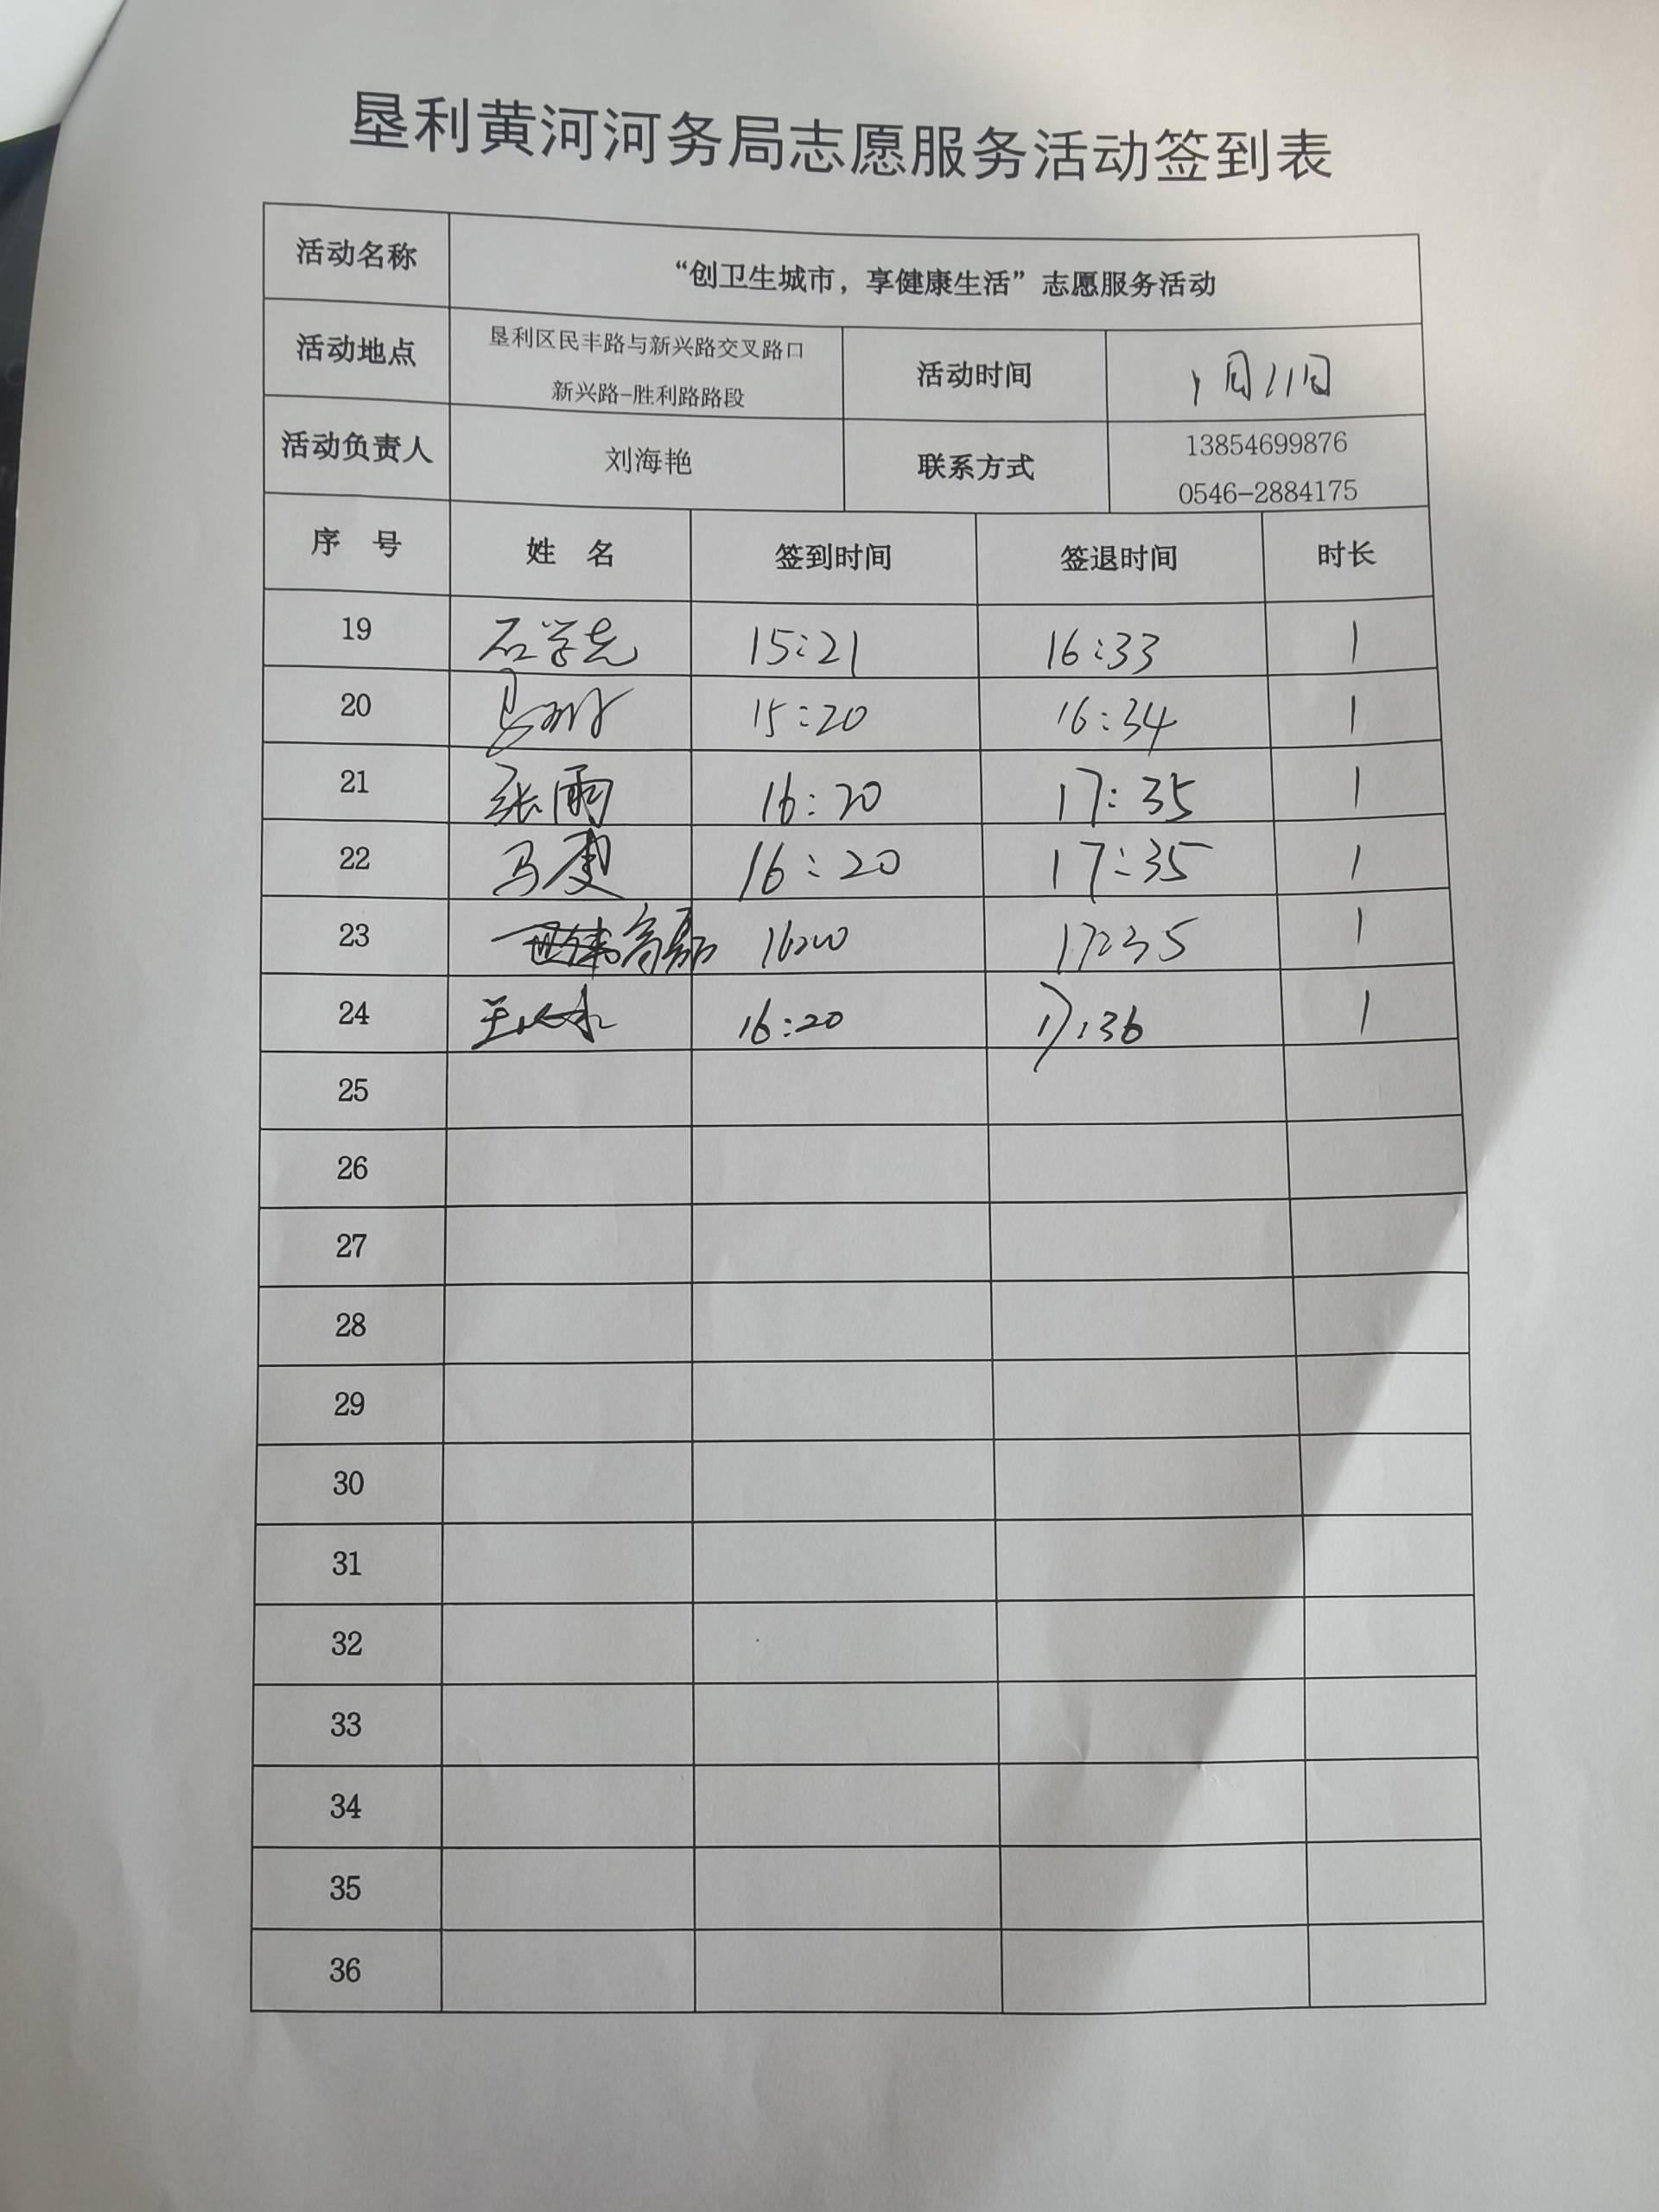 垦利黄河河务局志愿服务活动签到表
活动名称 “创卫生城市，享健康生活”志愿服务活动
活动地点 垦利区民丰路与新兴路交叉路口
新兴路-胜利路路段
活动时间 1月11日
活动负责人 刘海艳 联系方式 13854699876
0546-2884175
序 号 姓 名 签到时间 签退时间 时长
19 石学志 15:21 16:33 1
20 15:20 16:34 1
21 张雨 16:20 17:35 1
22 马 16:20 17:35 1
23 高磊 16:20 17:35 1
24 16:20 17:36 1
25
26
27
28
29
30
31
32
33
34
35
36